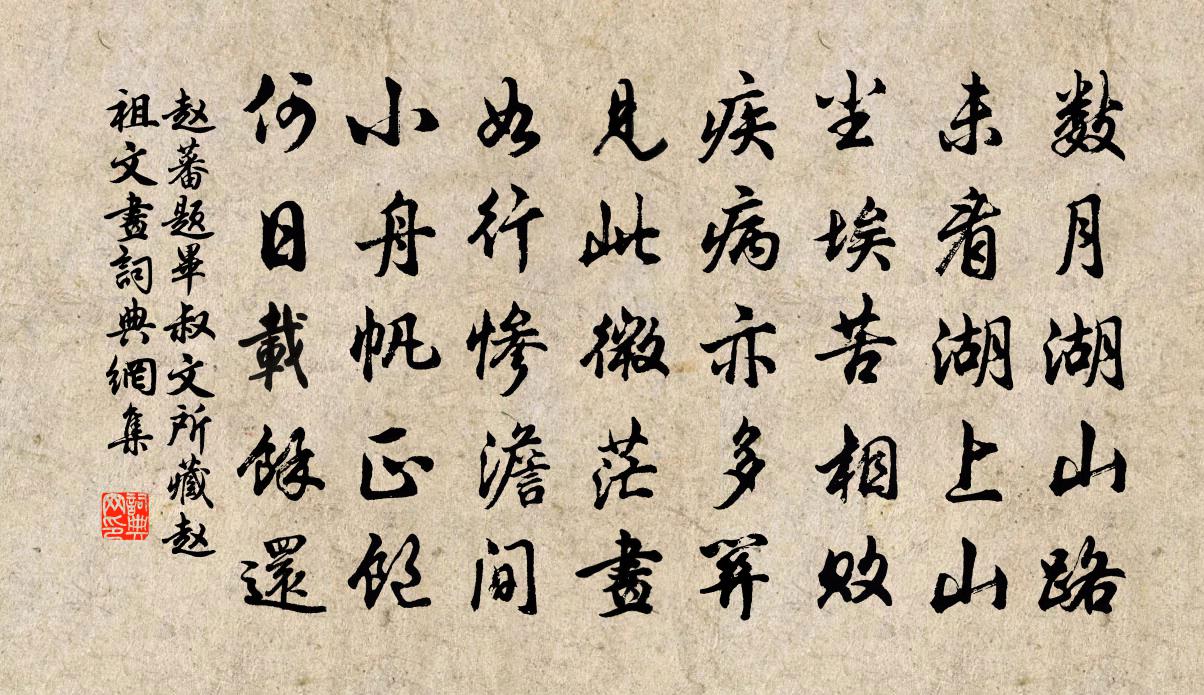 數月湖山路
未看湖上山
尘埃苦相敗
疾病亦多關
見此微茫畫
如行慘澹間
小舟帆正飽
何日載餘還
赵蕃题畢叔文所藏赵
祖文畫詞典網集
詞典
网印